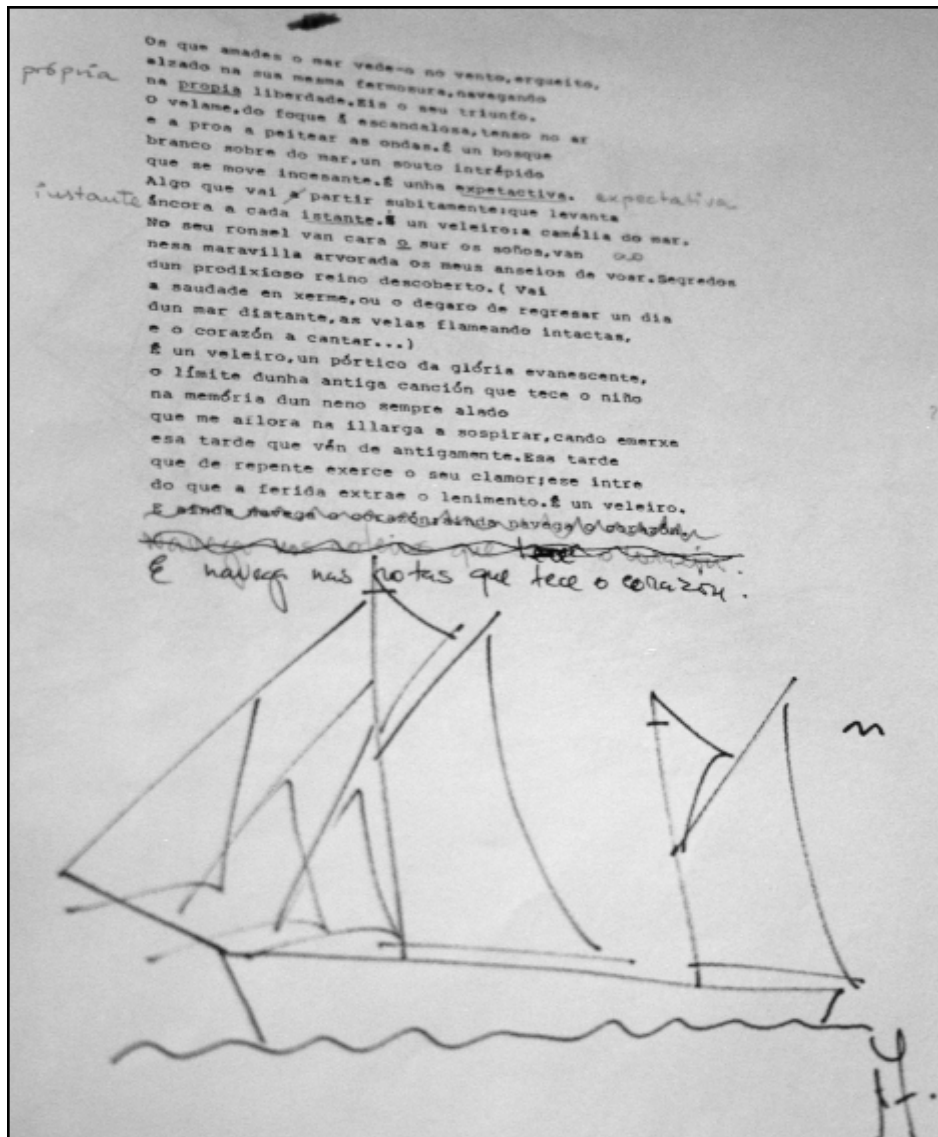 Os que amades o mar vede-o no vento,ergueito,
própria
alzado na sua mesma fermosura,navegando
na propia liberdade.Eis o seu triunfo.
O velame,do foque á escandalosa,tenso no ar
e a proa a peitear as ondas.É un bosque
branco sobre do mar,un souto intrépido
que se move incesante.É unha expetactiva. expectativa
instante
Algo que vai a partir subitamente:que levanta
áncora a cada istante.É un veleiro:a camélia do mar.
No seu ronsel van cara o sur os soños,van ao
nesa maravilla arvorada os meus anseios de voar.Segredos
dun prodixioso reino descoberto.( Vai
a saudade en xerme,ou o degaro de regresar un dia
dun mar distante,as velas flameando intactas,
e o corazón a cantar...)
É un veleiro,un pórtico da glória evanescente,
o límite dunha antiga canción que tece o niño
na memória dun neno sempre alado
que me aflora na illarga a sospirar,cando emerxe
esa tarde que vén de antigamente.Esa tarde
que de repente exerce o seu clamor;ese intre
do que a ferida extrae o lenimento.É un veleiro.
E ainda navega o corazón;ainda navega o corazón.
Navega que tece o corazón.
E navega nas rotas que tece o corazón.